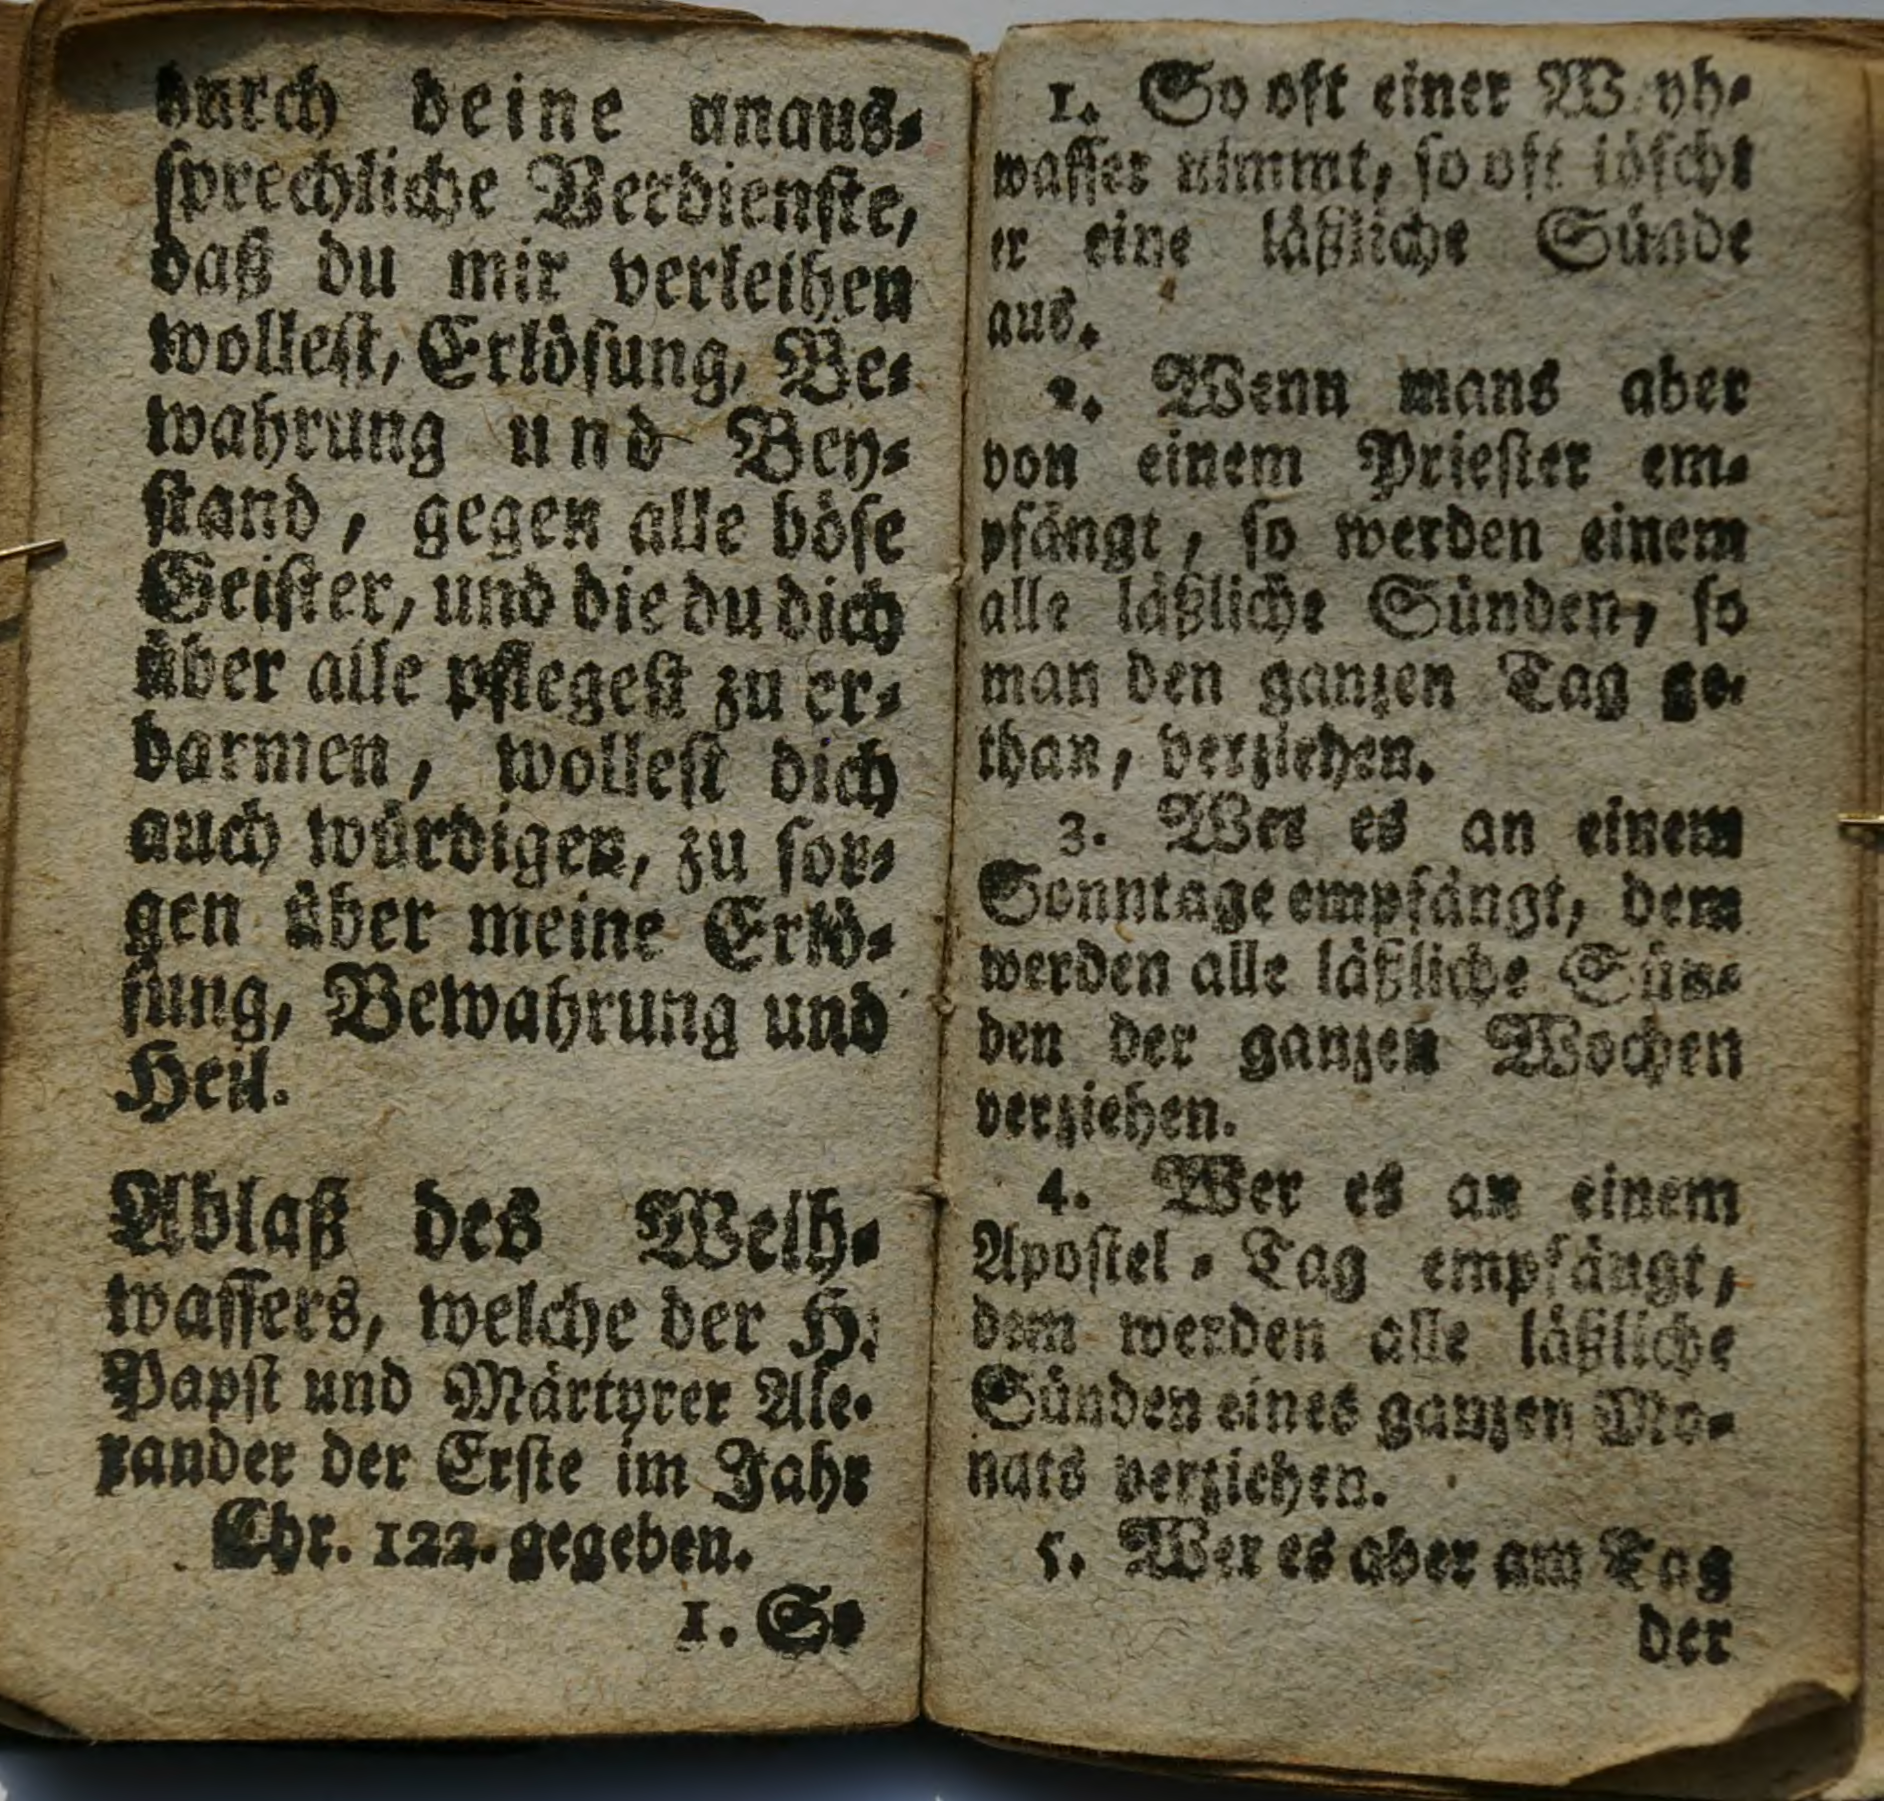 durch deine unaus⸗
sprechliche Verdienste,
daß du mir verleihen
wollest, Erlösung, Be⸗
wahrung und Bey⸗
stand, gegen alle böse
Geister, und die du dich
über alle pflegest zu er⸗
barmen, wollest dich
auch würdigen, zu sor⸗
gen über meine Erlö⸗
sung, Bewahrung und
Heil.
Ablaß des Weih⸗
wassers, welche der H.
Papst und Märtyrer Ale⸗
xander der Erste im Jahr
Chr. 122. gegeben.
1. So
1. So oft einer Weyh⸗
wasser nimmt, so oft löscht
er eine läßliche Sünde
aus.
2. Wenn mans aber
von einem Priester em⸗
pfängt, so werden einem
alle läßliche Sünden, so
man den ganzen Tag ge⸗
than, verziehen.
3. Wer es an einem
Sonntage empfängt, dem
werden alle läßliche Sün⸗
den der ganzen Wochen
verziehen.
4. Wer es an einem
Apostel⸗Tag empfängt,
dem werden alle läßliche
Sünden eines ganzen Mo⸗
nats verziehen.
5. Wer es aber am Tag
der